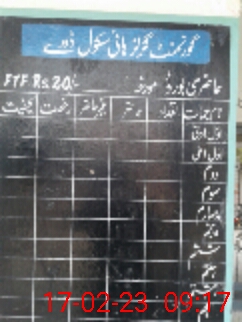 گورنمنٹ گرلز ہائی سکول ڈوڈے
حاضری بورڈ مورخہ
FTF Rs. 20/-
نام جماعت تعداد حاضر غیر حاضر رخصت کیفیت
اول ادنیٰ
اول اعلیٰ
دوم
سوم
چہارم
پنجم
ششم
ہفتم
ہشتم
17-02-23 09:17